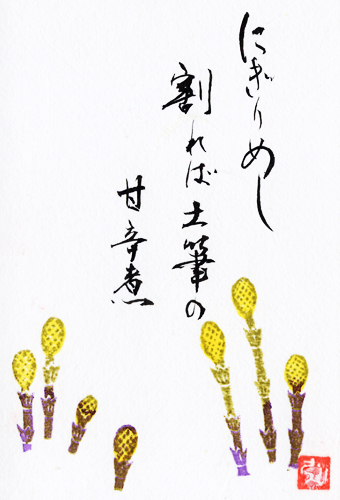 にぎりめし
割れば土筆の
甘辛煮